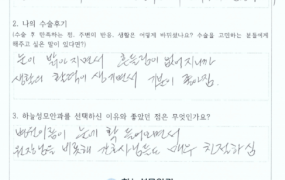 2. 나의 수술후기
(수술 후 만족하는 점, 주변의 반응, 생활은 어떻게 바뀌셨나요? 수술을 고민하는 분들에게
해주고 싶은 말이 있다면?)
눈이 밝아지면서 흔들림이 없어지니까
생활의 활력이 생기면서 기분이 좋아짐.
3. 하늘성모안과를 선택하신 이유와 좋았던 점은 무엇인가요?
병원이름이 눈에 확 들어오면서
원장님을 비롯해 간호사님들도 매우 친절하심